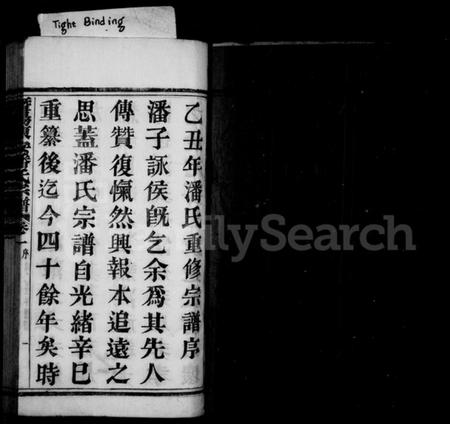 Tight Binding
乙丑年潘氏重修宗譜序
潘子詠侯既乞余爲其先人
傳贊復愾然興報本追遠之
思蓋潘氏宗譜自光緒辛巳
重纂後迄今四十餘年矣時
潘氏宗譜 卷一 序 一
FamilySearch